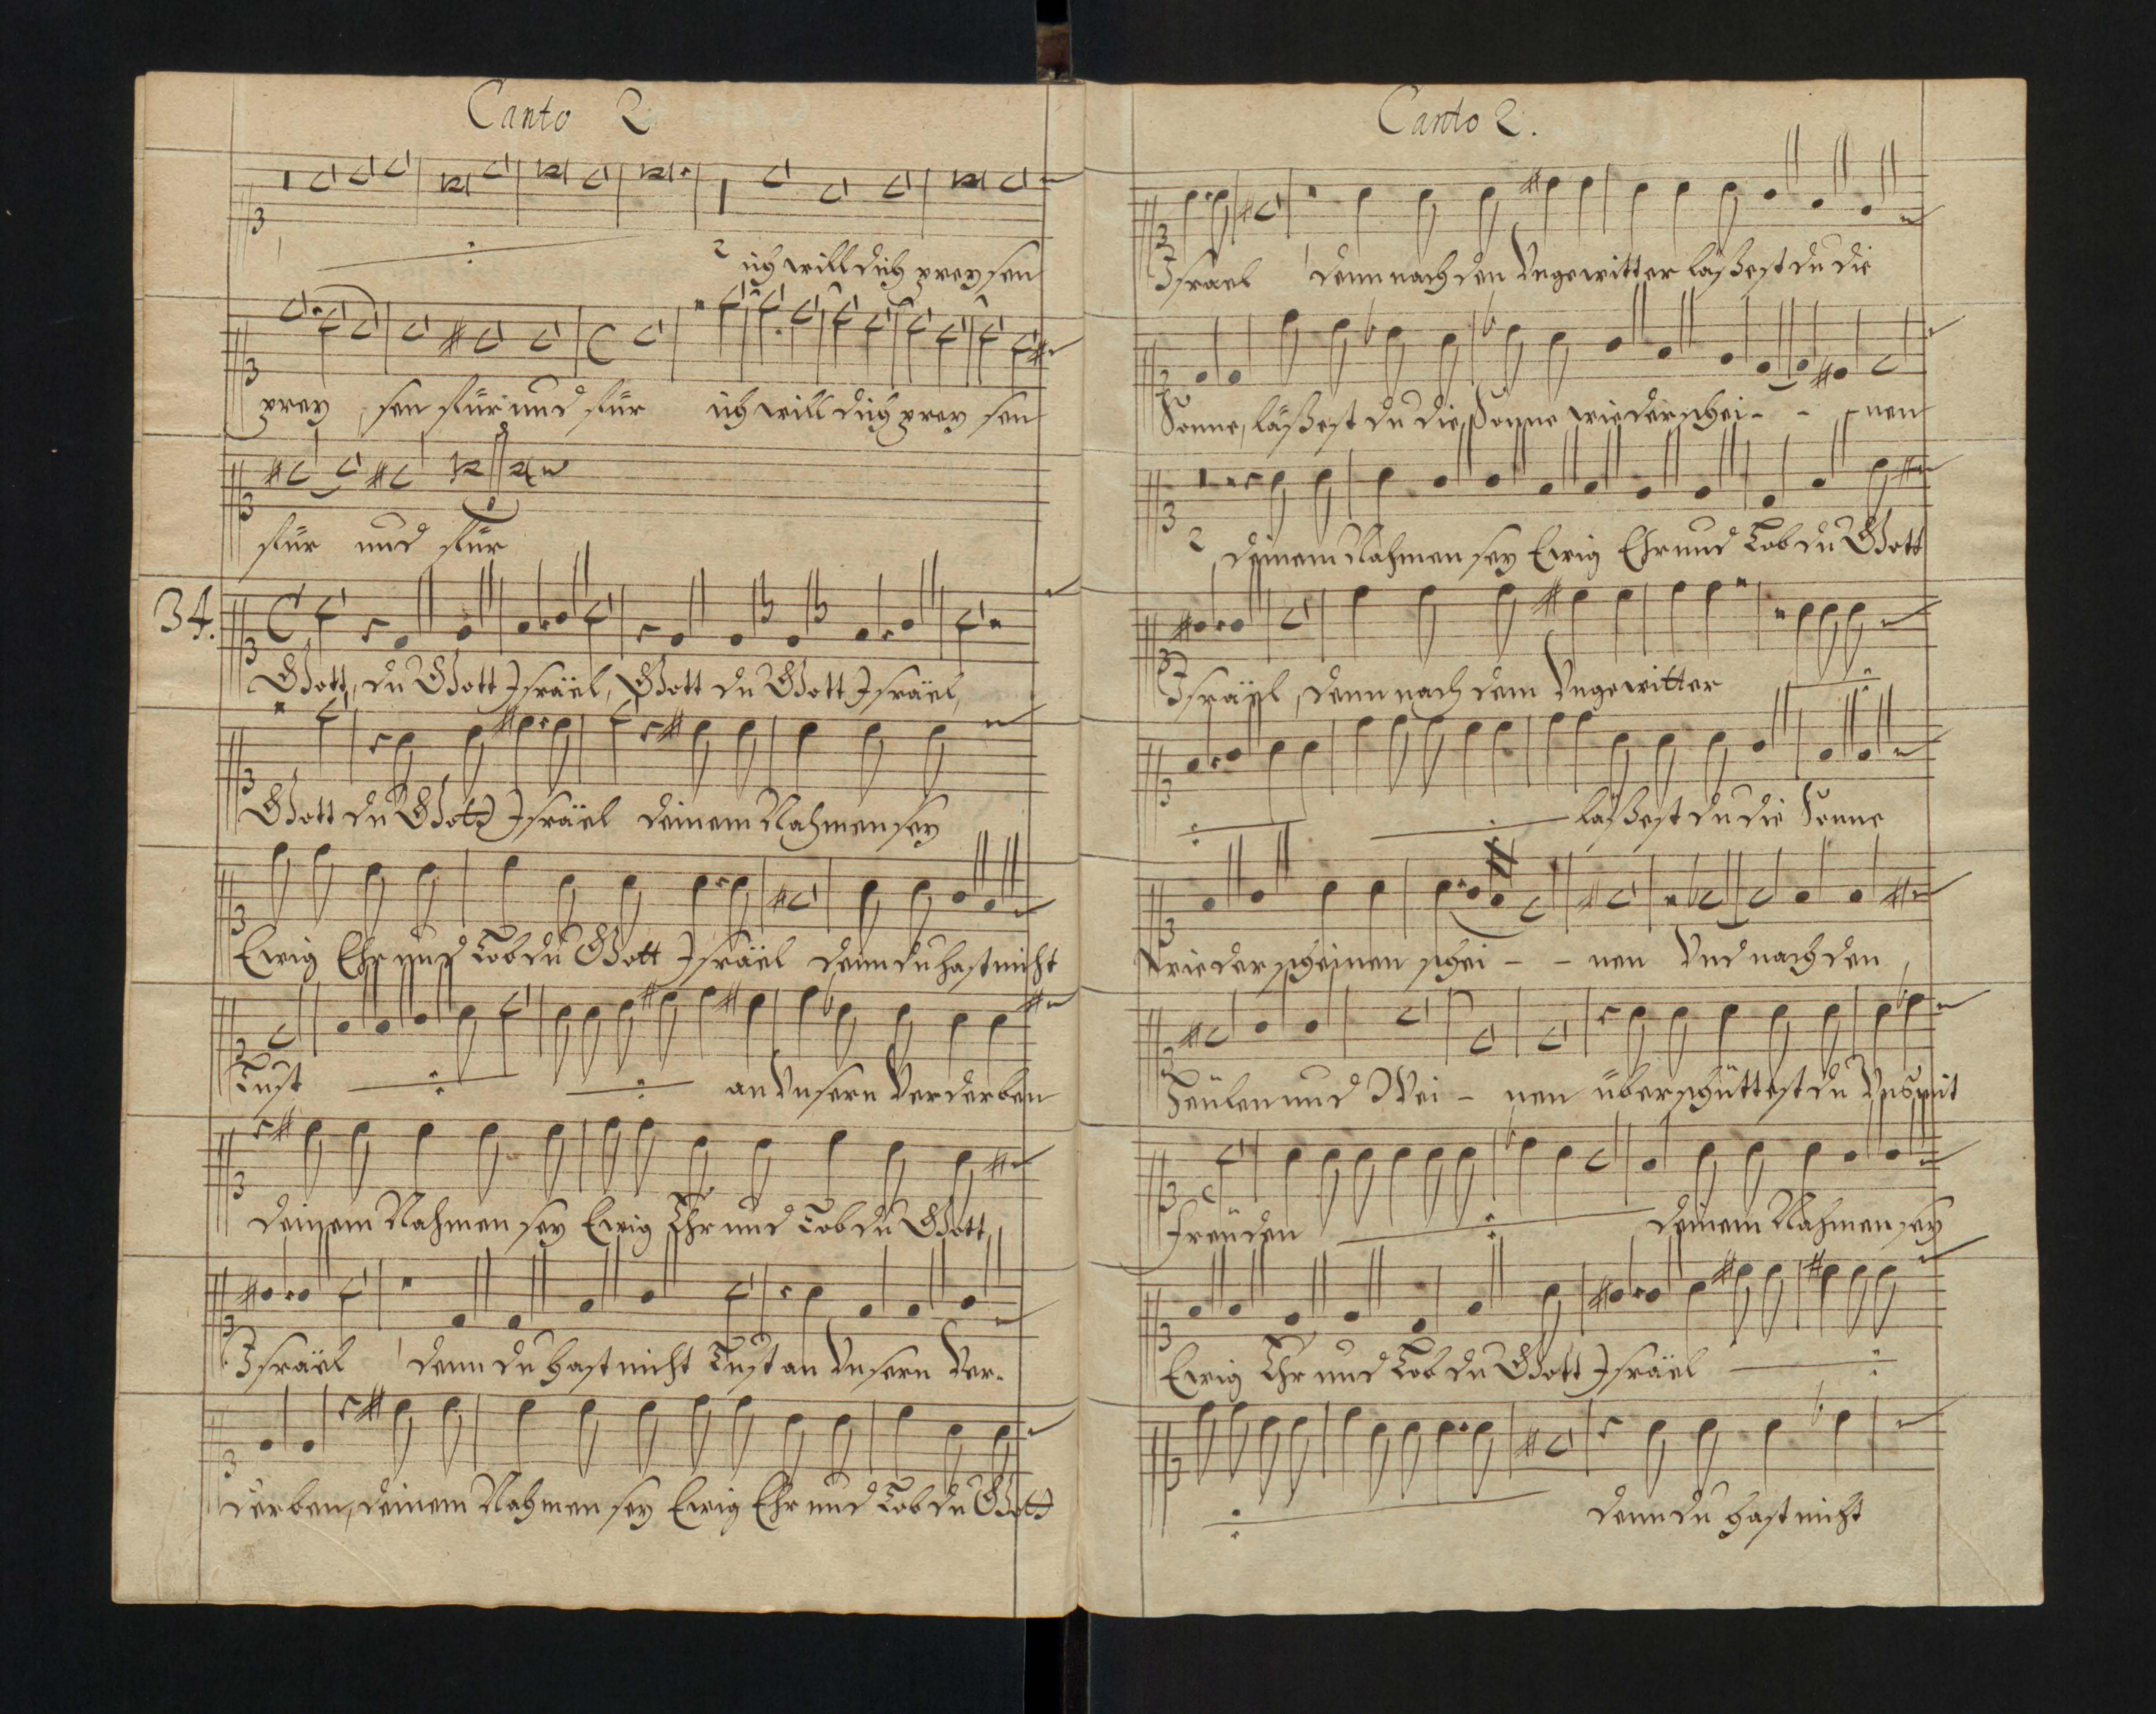 Canto 2
ich will dich preysen
prey sen für und für ich will dich prey sen
für und für
34.
Gott, du Gott Israël, Gott du Gott Israël,
Gott du Gott Israël deinem Nahmen sey
Ewig Ehr und Lob du Gott Israël denn du hast nicht
Lust an Unsern Verderben
deinem Nahmen sey Ewig Ehr und Lob du Gott
Israël denn du hast nicht Lust an Unsern Ver-
derben, deinem Nahmen sey Ewig Ehr und Lob du Gott
Canto 2.
Israel denn nach den Ungewitter läßest du die
Sonne, läßest du die Sonne wieder schei - - nen
deinem Nahmen sey Ewig Ehr und Lob du Gott
Israël, denn nach dem Ungewitter
läßest du die Sonne
Wieder scheinen schei - - nen Und nach den
Heülen und Wei - nen überschüttest du Uns mit
Freüden deinem Nahmen sey
Ewig Ehr und Lob du Gott Israël
denn du hast nicht